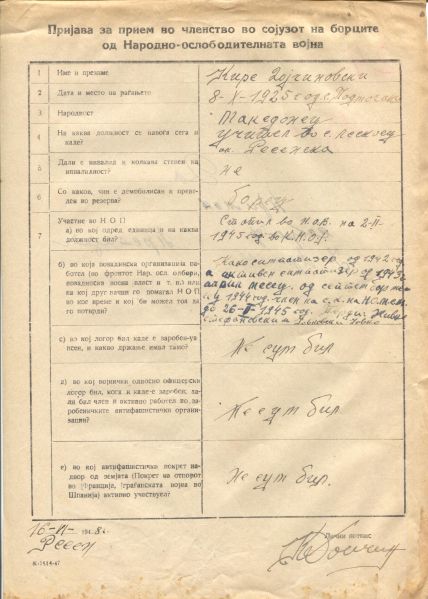 Пријава за прием во членство во сојузот на борците
од Народно-ослободителната војна
1 Име и презиме Кире Дојчиновски
2 Дата и место на раѓањето 8-X-1925 год с. Подмочани
3 Народност Македонец
4 На каква должност се наоѓа сега и каде? учител во с. Лескоец ок. Ресенска
5 Дали е инвалид и колкава степен на инвалидност? не
6 Со каков, чин е демобилисан и преведен во резерва? борец
7 Участие во Н О П
а) во кој одред единица и на каква должност бил?
Стапил во на 2-II-
1945 год. во К.Н.О.Ј.
б) во која позадинска организација работел (во фронтот Нар. осл. одбори,
позадинока воена власт и т. н.) или на кој друг начин го помагал Н О П
во кое време и кој би можел тоа да го потврди?
Како симпатизер од 1942 год
а активен симпатизер од 1943 г.
април месец. од септембар ме-
сец 1944 год. член на
до 26-II-1945 год.
с) во кој логор бил каде е заробен-уапсен, и какво држање имал тамо? Не сум бил
д) во кој војнички односно официрски логор бил, кога и каде-е заробен, дали бил член и активно работел во заробеничките антифашистички организации? Не сум бил
е) во кој антифашистички покрет надвор од земјата (Покрет на отпорот во Франција, Граѓанската војна во Шпанија) активно участвувал? Не сум бил.
16-VI- 1948 г.
Ресен
Лични потпис
К-1414-47